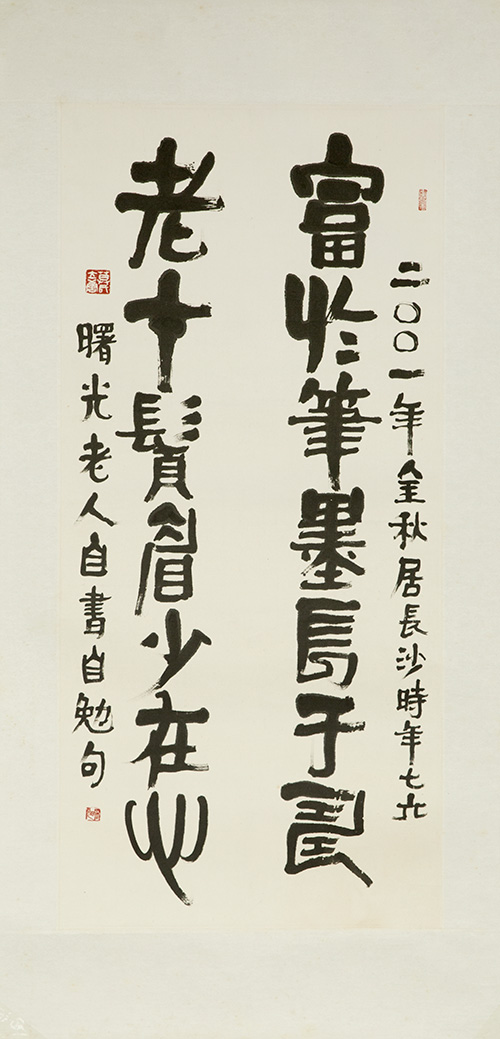 二〇〇一年金秋居長沙時年七六
富於筆墨長于
老在鬚眉少在心
曙光老人自書自勉句